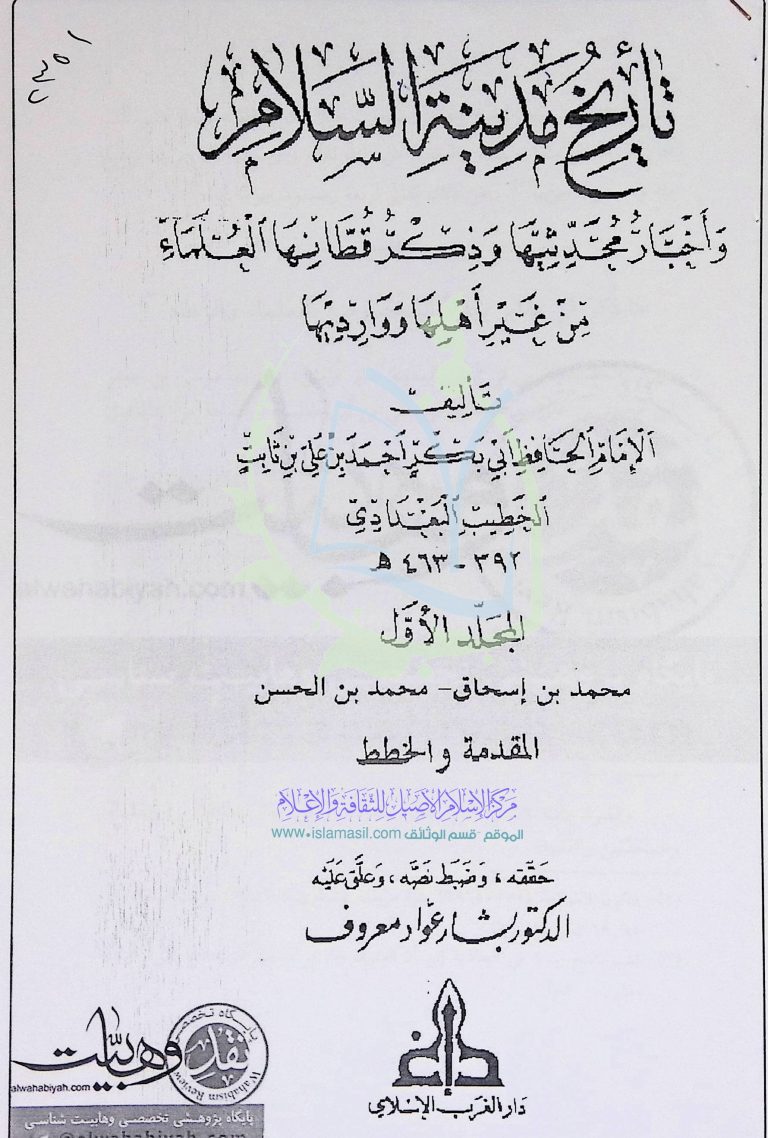 تأريخ مدينة السلام
وَأَخْبَارُ مُحَدِّثِيهَا وَذِكْرُ قُطَّانِهَا الْعُلَمَاءِ
مِنْ غَيْرِ أَهْلِهَا وَوَارِدِيهَا
تأليف
الإمام الحافظ أبي بكر أحمد بن علي بن ثابت
الخطيب البغدادي
٣٩٢ - ٤٦٣ هـ
المجلد الأول
محمد بن إسحاق - محمد بن الحسن
المقدمة والخطط
مركز الإسلام الأصيل للثقافة والإعلام
الموقع - قسم الوثائق www.islamasil.com
حققه، وضبط نصه، وعلق عليه
الدكتور بشار عواد معروف
دار الغرب الإسلامي
پایگاه تخصصی
نقد وهابیت
Wahabism Review
alwahabiyah.com
پایگاه پژوهشی تخصصی وهابیت شناسی
@alwahabiyah.com